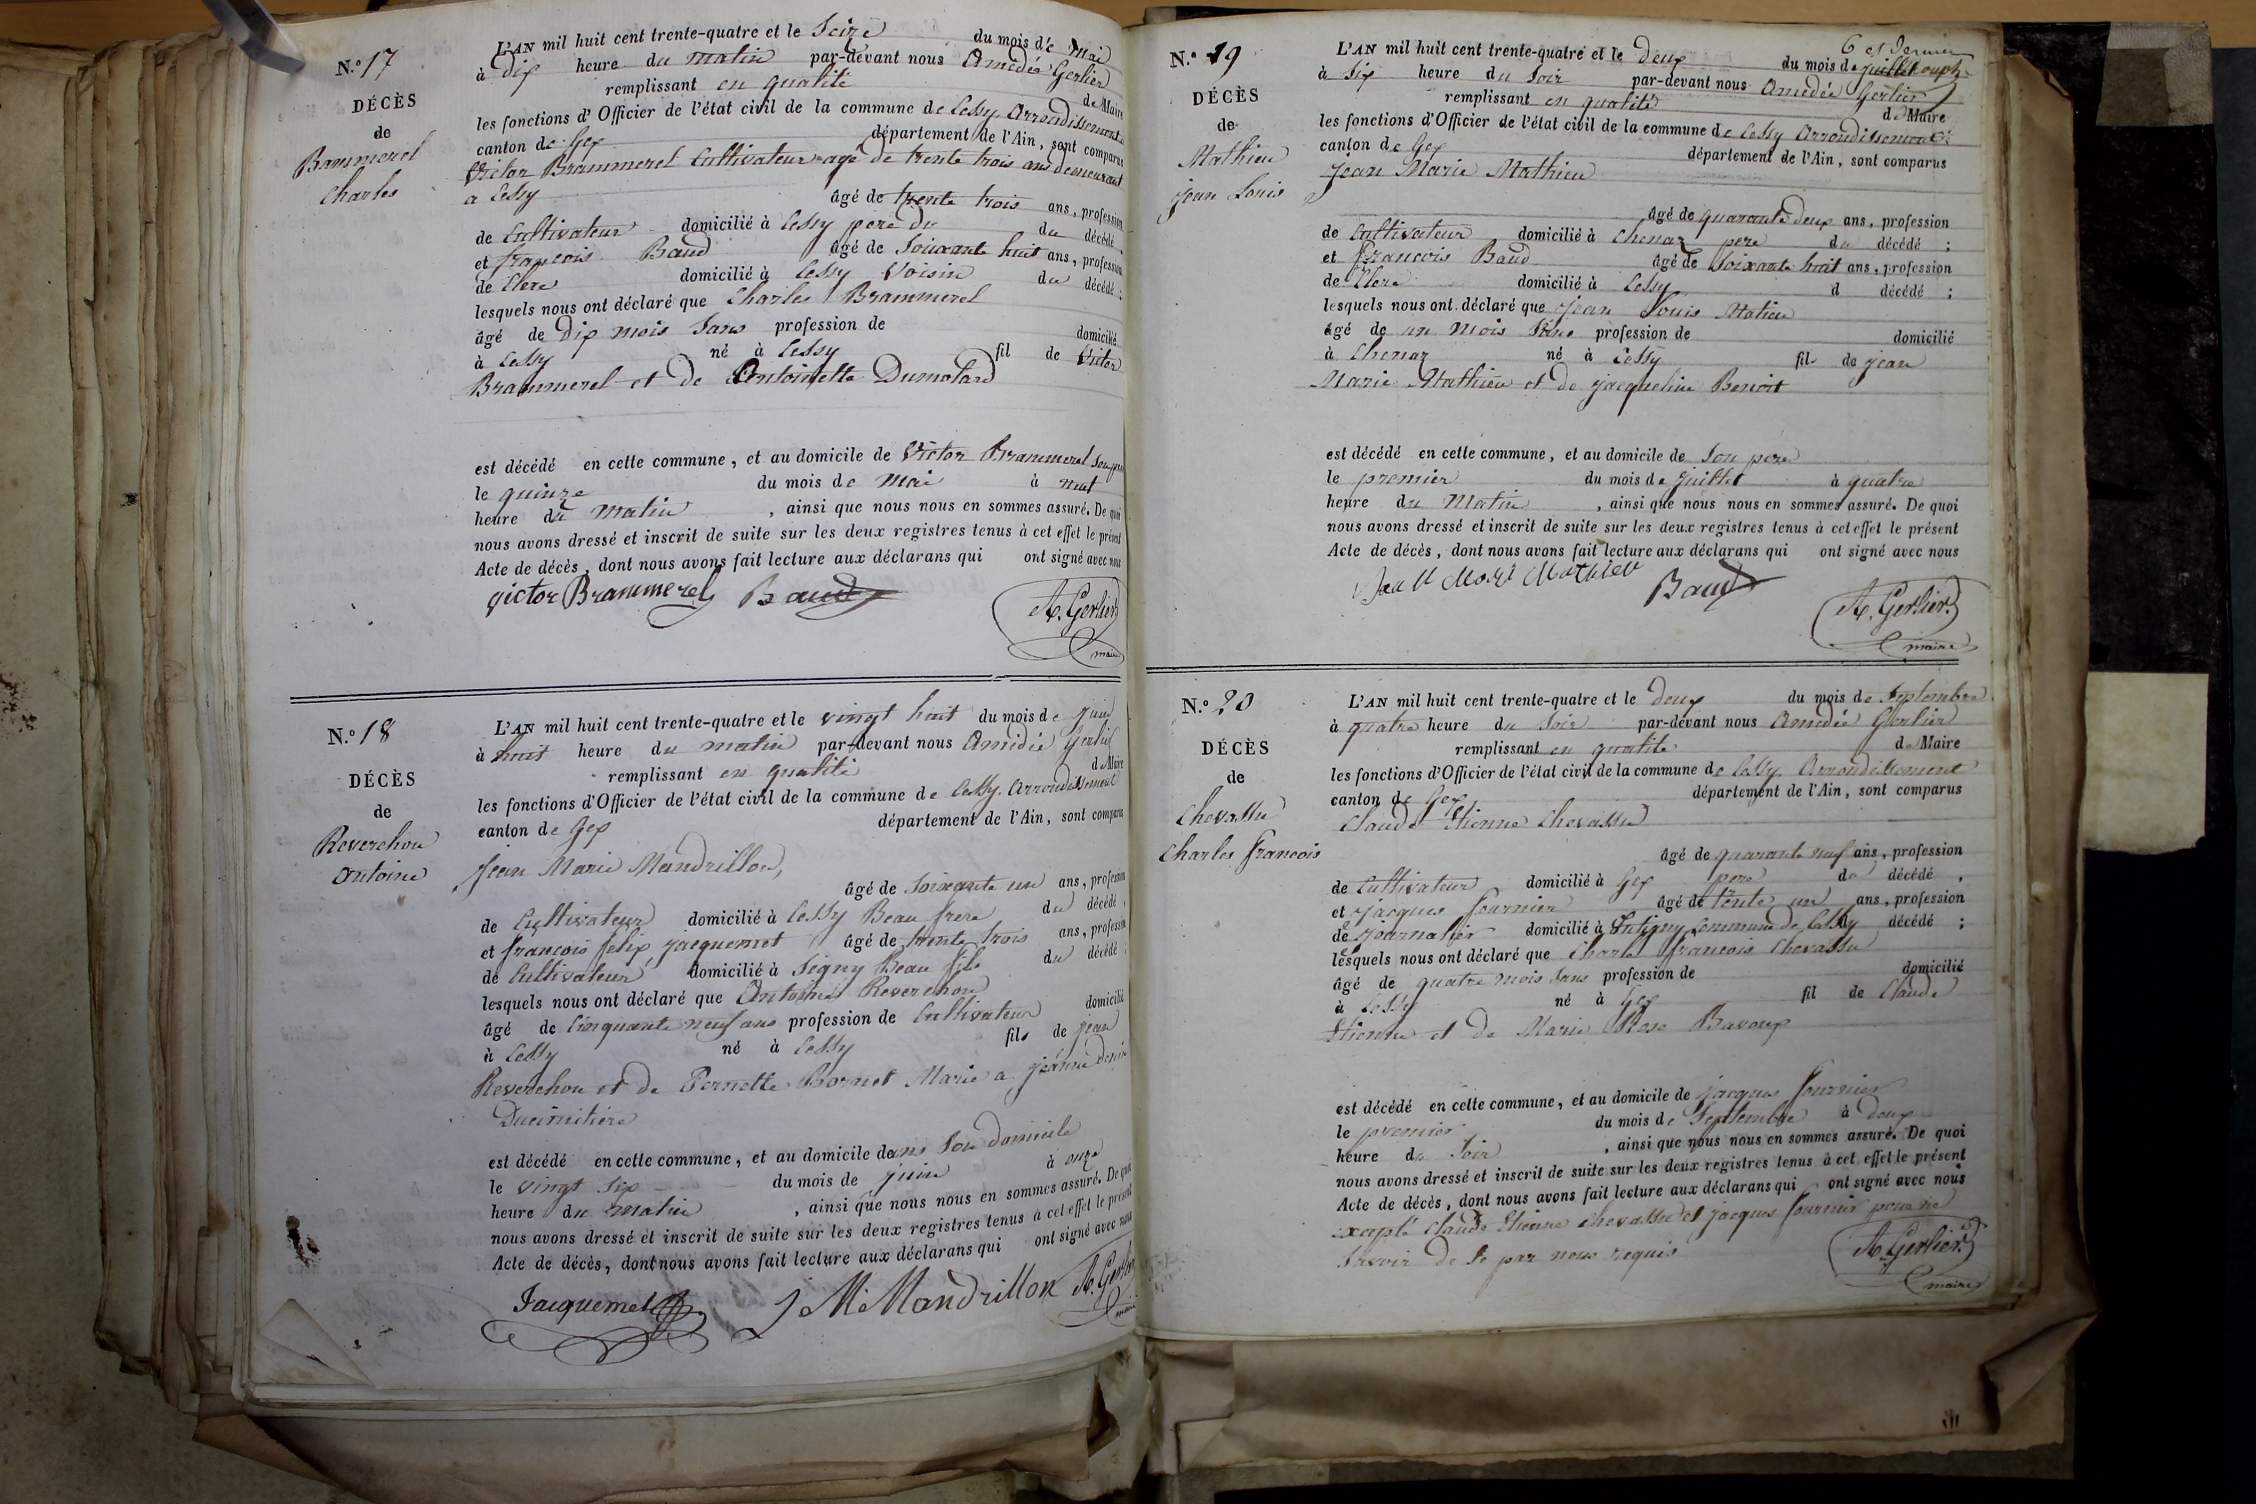 N.º 17
DÉCÈS
de
Brammerel
Charles
L'AN mil huit cent trente-quatre et le Seize du mois de Mai
à dix heure du matin par-devant nous Amedée Gerlier
remplissant en qualité de Maire
les fonctions d'Officier de l'état civil de la commune de Cessy Arrondissement
canton de Gex département de l'Ain, sont comparus
Victor Brammerel Cultivateur agé de trente trois ans demeurant
a Cessy âgé de trente trois ans, profession
de Cultivateur domicilié à Cessy pere du du décédé
et françois Baud âgé de Soixante huit ans, profession
de Clerc domicilié à Cessy Voisin du décédé ;
lesquels nous ont déclaré que Charles Brammerel
âgé de dix mois Sans profession de domicilié
à Cessy né à Cessy fil de Victor
Brammerel et de Antoinette Dumolard
est décédé en cette commune, et au domicile de Victor Brammerel Son pere
le quinze du mois de Mai à huit
heure du matin , ainsi que nous nous en sommes assuré. De quoi
nous avons dressé et inscrit de suite sur les deux registres tenus à cet effet le présent
Acte de décès, dont nous avons fait lecture aux déclarans qui ont signé avec nous
victor Brammerel Baud A. Gerlier
maire
N.º 18
DÉCÈS
de
Reverchon
Antoine
L'AN mil huit cent trente-quatre et le vingt huit du mois de Juin
à huit heure du matin par-devant nous Amédée Gerlier
remplissant en qualité de Maire
les fonctions d'Officier de l'état civil de la commune de Cessy Arrondissement
canton de Gex département de l'Ain, sont comparus
Jean Marie Mandrillon,
âgé de Soixante un ans, profession
de Cultivateur domicilié à Cessy Beau frere du décédé,
et françois felix jacquemet âgé de trente trois ans, profession
de Cultivateur domicilié à Segny Beau fils du décédé ;
lesquels nous ont déclaré que Antoine Reverchon
âgé de Cinquante neuf ans profession de Cultivateur domicilié
à Cessy né à Cessy fils de jean
Reverchon et de Pernette Bornet Marie a jeanne denise
Ducimitiere
est décédé en cette commune, et au domicile dans Son domicile
le vingt Six du mois de juin à onze
heure du matin , ainsi que nous nous en sommes assuré. De quoi
nous avons dressé et inscrit de suite sur les deux registres tenus à cet effet le présent
Acte de décès, dont nous avons fait lecture aux déclarans qui ont signé avec nous
Jacquemet J M Mandrillon A. Gerlier
maire
N.º 19
DÉCÈS
de
Mathieu
jean Louis
6 et dernier
L'AN mil huit cent trente-quatre et le deux du mois de juillet
à Six heure du Soir par-devant nous Amedée Gerlier
remplissant en qualité de Maire
les fonctions d'Officier de l'état civil de la commune de Cessy Arrondissement
canton de Gex département de l'Ain, sont comparus
Jean Marie Mathieu
âgé de quarante deux ans, profession
de Cultivateur domicilié à Chenaz pere du décédé ;
et francois Baud âgé de Soixante huit ans, profession
de Clerc domicilié à Cessy d décédé ;
lesquels nous ont déclaré que jean Louis Matieu
âgé de un mois Sans profession de domicilié
à Chenaz né à Cessy fil de jean
Marie Mathieu et de jacqueline Benoit
est décédé en cette commune, et au domicile de Son pere
le premier du mois de juillet à quatre
heure du Matin , ainsi que nous nous en sommes assuré. De quoi
nous avons dressé et inscrit de suite sur les deux registres tenus à cet effet le présent
Acte de décès, dont nous avons fait lecture aux déclarans qui ont signé avec nous
Mathieu Baud A. Gerlier
maire
N.º 20
DÉCÈS
de
Chevassu
Charles francois
L'AN mil huit cent trente-quatre et le deux du mois de Septembre
à quatre heure du Soir par-devant nous Amedée Gerlier
remplissant en qualité de Maire
les fonctions d'Officier de l'état civil de la commune de Cessy Arrondissement
canton de Gex département de l'Ain, sont comparus
Claude Etienne Chevassu
âgé de quarante neuf ans, profession
de Cultivateur domicilié à Gex pere du décédé ,
et jacques fournier âgé de tente un ans, profession
de journalier domicilié à Tutigny Commune de Cessy décédé ;
lesquels nous ont déclaré que Charle francois Chevassu
âgé de quatre mois Sans profession de domicilié
à Cessy né à Gex fil de Claude
Etienne et de Marie Rose Bavoux
est décédé en cette commune, et au domicile de jacques fournier
le premier du mois de Septembre à deux
heure du Soir , ainsi que nous nous en sommes assuré. De quoi
nous avons dressé et inscrit de suite sur les deux registres tenus à cet effet le présent
Acte de décès, dont nous avons fait lecture aux déclarans qui ont signé avec nous
exepté Claude Etienne Chevassu et jacques fournier pour ne
Savoir de Ce par nous requis A. Gerlier
maire